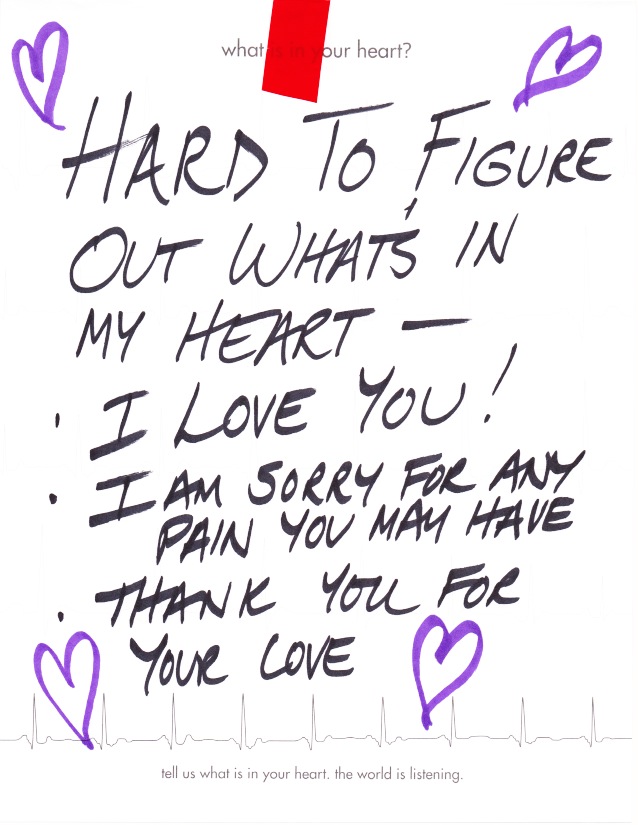 what is in your heart?
HARD TO FIGURE
OUT WHAT'S IN
MY HEART —
· I LOVE YOU!
· I AM SORRY FOR ANY
PAIN YOU MAY HAVE
· THANK YOU FOR
YOUR LOVE
tell us what is in your heart. the world is listening.